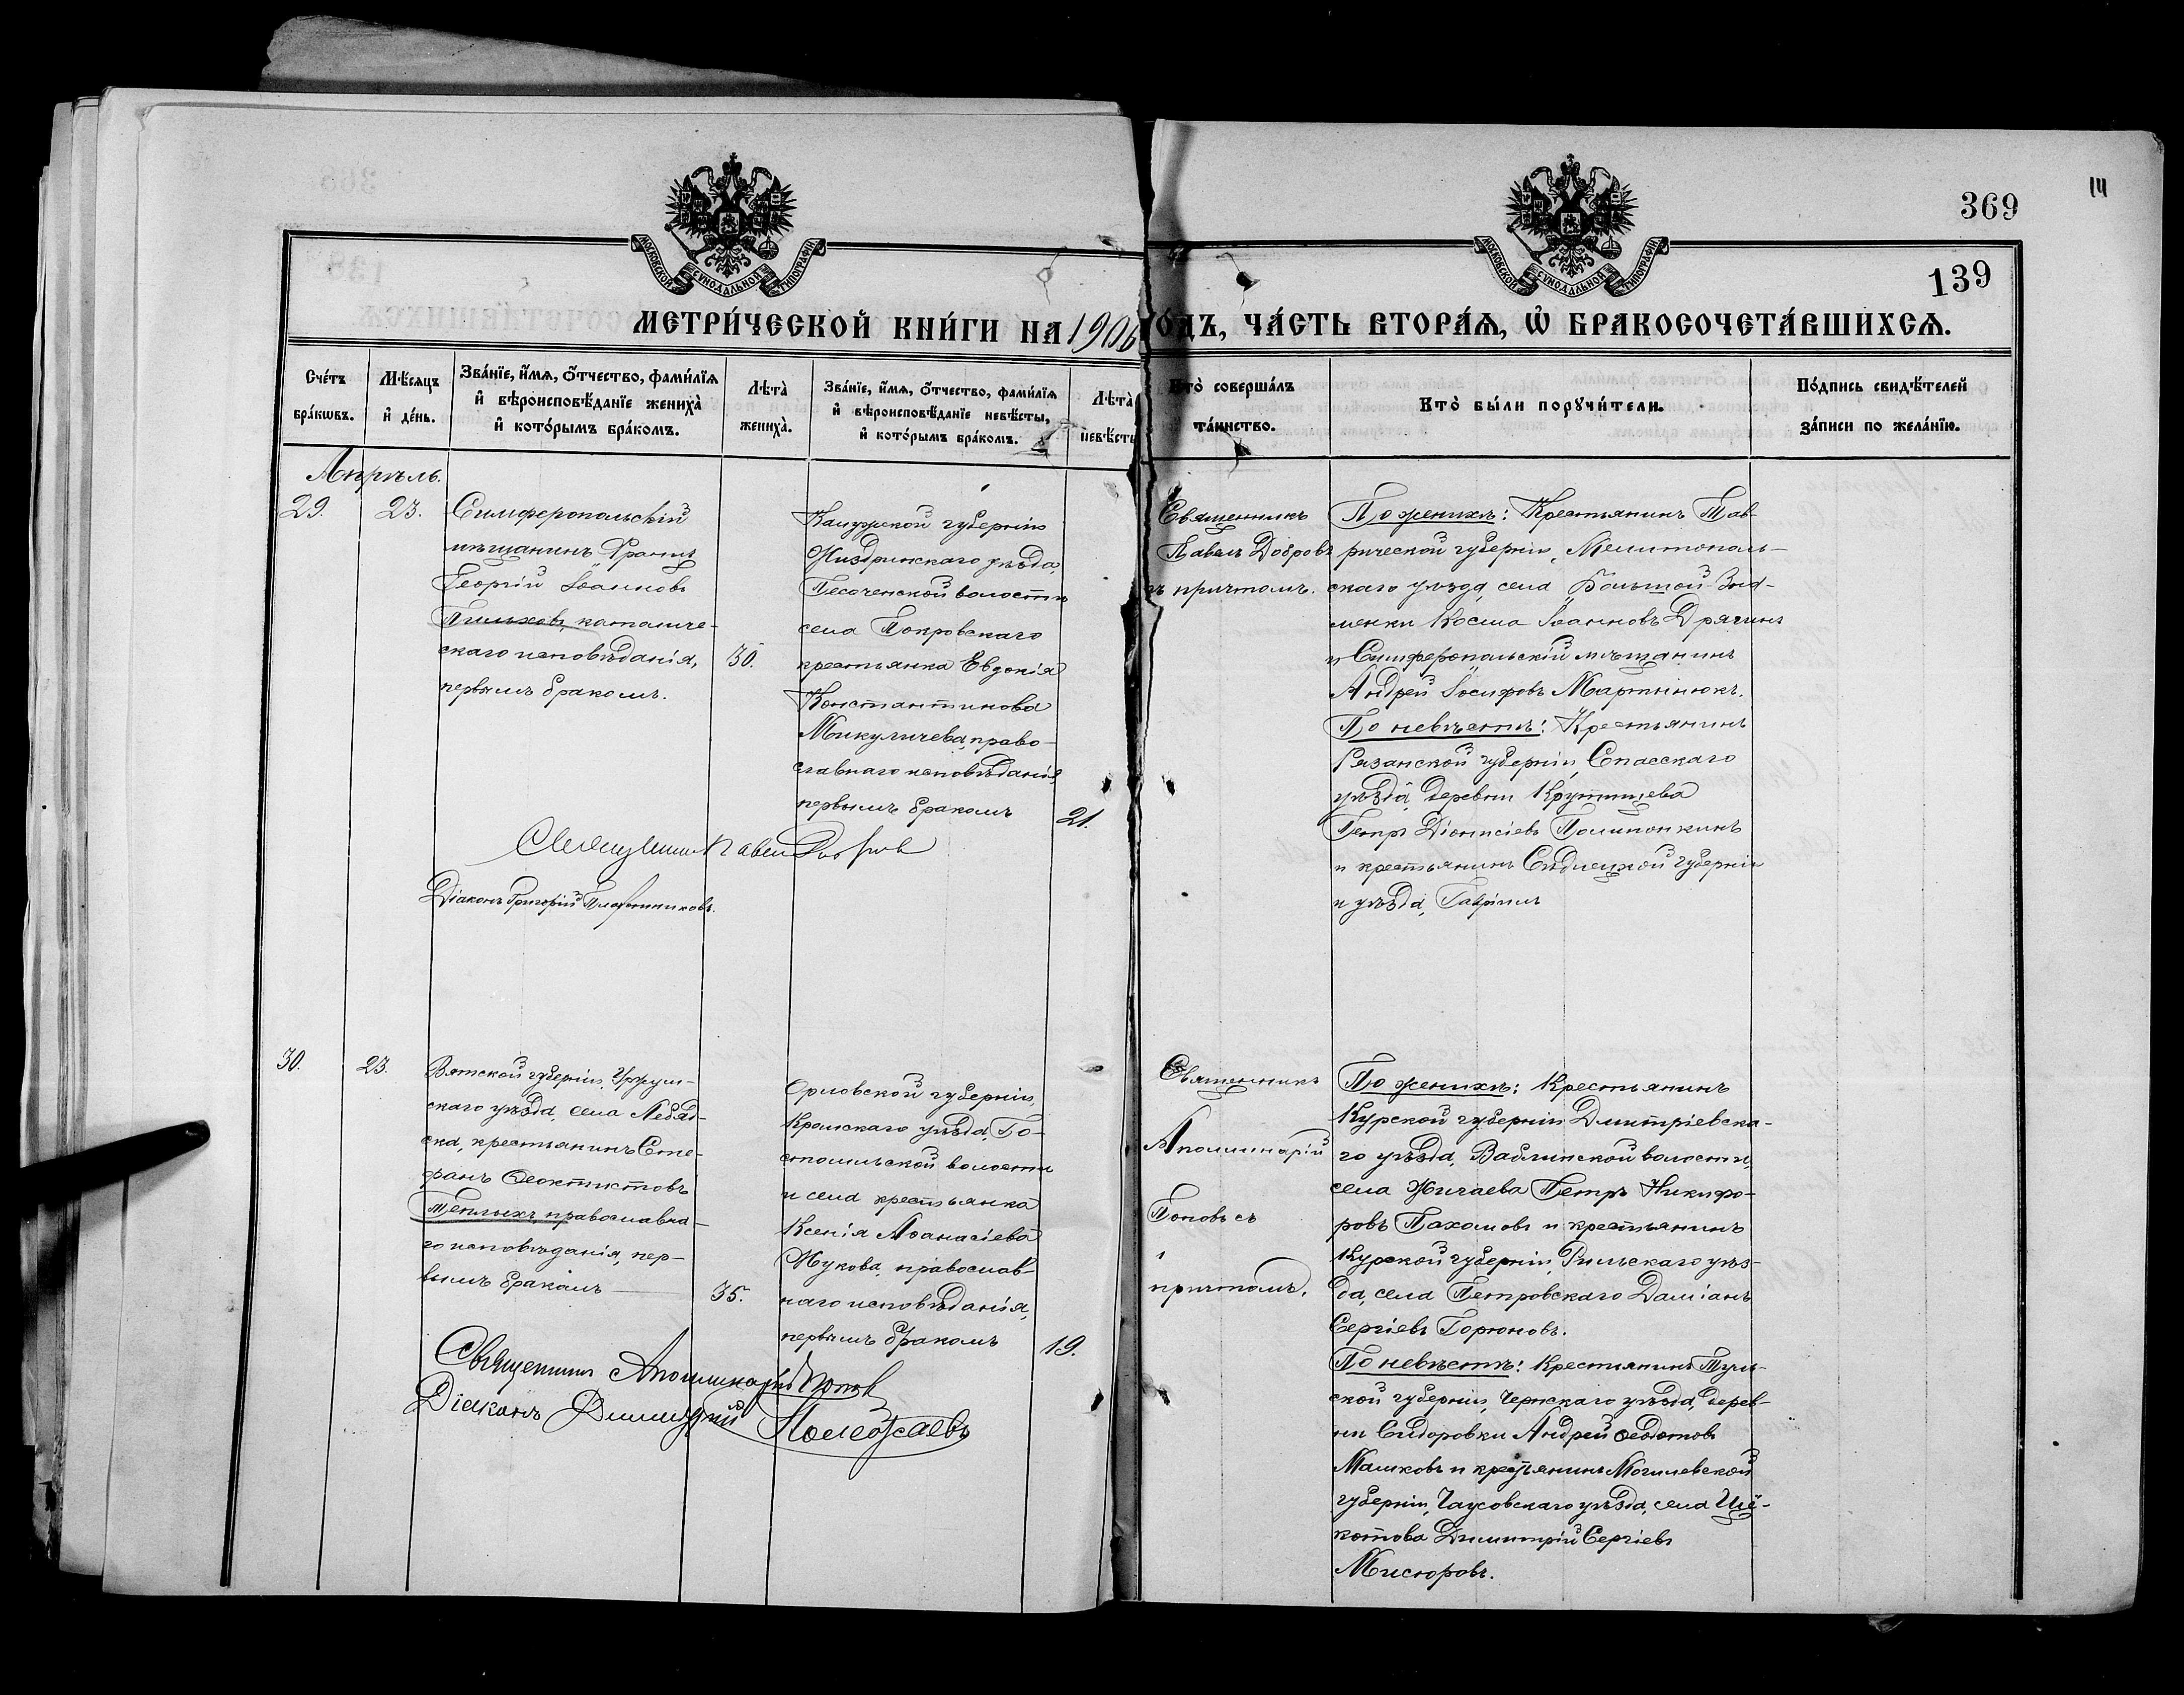 369
14
139
МОСКОВСКОЙ СѴНОДАЛЬНОЙ ТИПОГРАФІИ
МОСКОВСКОЙ СѴНОДАЛЬНОЙ ТИПОГРАФІИ
МЕТРИ́ЧЕСКОЙ КНИ́ГИ НА 1906 ГОДЪ, ЧА́СТЬ ВТОРА́Ѧ, Ѡ҆ БРАКОСОЧЕТА́ВШИХСѦ.
Сче́тъ бра́кѡвъ.
Мѣ́сѧцъ и҆ де́нь.
Зва́нїе, и҆́мѧ, ѻ҆́тчество, фами́лїѧ и҆ вѣроисповѣ́данїе жениха̀ и҆ кото́рымъ бра́комъ.
Лѣта̀ жениха̀.
Зва́нїе, и҆́мѧ, ѻ҆́тчество, фами́лїѧ и҆ вѣроисповѣ́данїе невѣ́сты, и҆ кото́рымъ бра́комъ.
Лѣта̀ невѣ́сты
Кто̀ соверша́лъ та́инство.
Кто̀ бы́ли порꙋчи́тели.
По́дпись свидѣ́телей за́писи по жела́нїю.
Апрѣль.
29.
23.
Симферопольскій
мѣщанинъ Францъ
Георгій Іоанновъ
Пильховъ, католиче-
скаго исповѣданія,
первымъ бракомъ.
30.
Калужской губерніи
Жиздринскаго уѣзда,
Песоченской волости
села Покровскаго
крестьянка Евдокія
Константинова
Микуличева, право-
славнаго исповѣданія
первымъ бракомъ
21.
Священникъ Павелъ Добровъ
Діаконъ Григорій Плотниковъ.
Священникъ
Павелъ Добровъ
съ причтомъ.
По женихѣ: Крестьянинъ Тав-
рической губерніи, Мелитополь-
скаго уѣзда, села Большой Зна-
менки Косма Іоанновъ Дрягинъ
и Симферопольскій мѣщанинъ
Андрей Іосифовъ Мартынюкъ.
По невѣстѣ: Крестьянинъ
Рязанской губерніи, Спасскаго
уѣзда, деревни Крутицева
Петръ Діонисіевъ Полипонкинъ
и крестьянинъ Сѣдлецкой губерніи
и уѣзда, Гавріилъ
30.
23.
Вятской губерніи, Уржум-
скаго уѣзда, села Лебяж-
ска, крестьянинъ Сте-
фанъ Ѳеоктистовъ
Теплыхъ, православна-
го исповѣданія, пер-
вымъ бракомъ
35.
Орловской губерніи,
Кромскаго уѣзда, Го-
стомльской волости
и села крестьянка
Ксенія Аѳанасіева
Жукова, православ-
наго исповѣданія,
первымъ бракомъ
19.
Священникъ Аполлинарій Поповъ
Діаконъ Димитрій Полежаевъ
Священникъ
Аполлинарій
Поповъ съ
причтомъ.
По женихѣ: Крестьянинъ
Курской губерніи Дмитріевска-
го уѣзда, Ваблинской волости,
села Жигаева Петръ Никифо-
ровъ Пахомовъ и крестьянинъ
Курской губерніи, Рильскаго уѣз-
да, села Петровскаго Даміанъ
Сергіевъ Горюновъ.
По невѣстѣ: Крестьянинъ Туль-
ской губерніи, Чернскаго уѣзда, дерев-
ни Сидоровки Андрей Ѳедотовъ
Малковъ и крестьянинъ Могилевской
губерніи, Чаусовскаго уѣзда, села Ще-
котова Димитрій Сергіевъ
Мисюровъ.